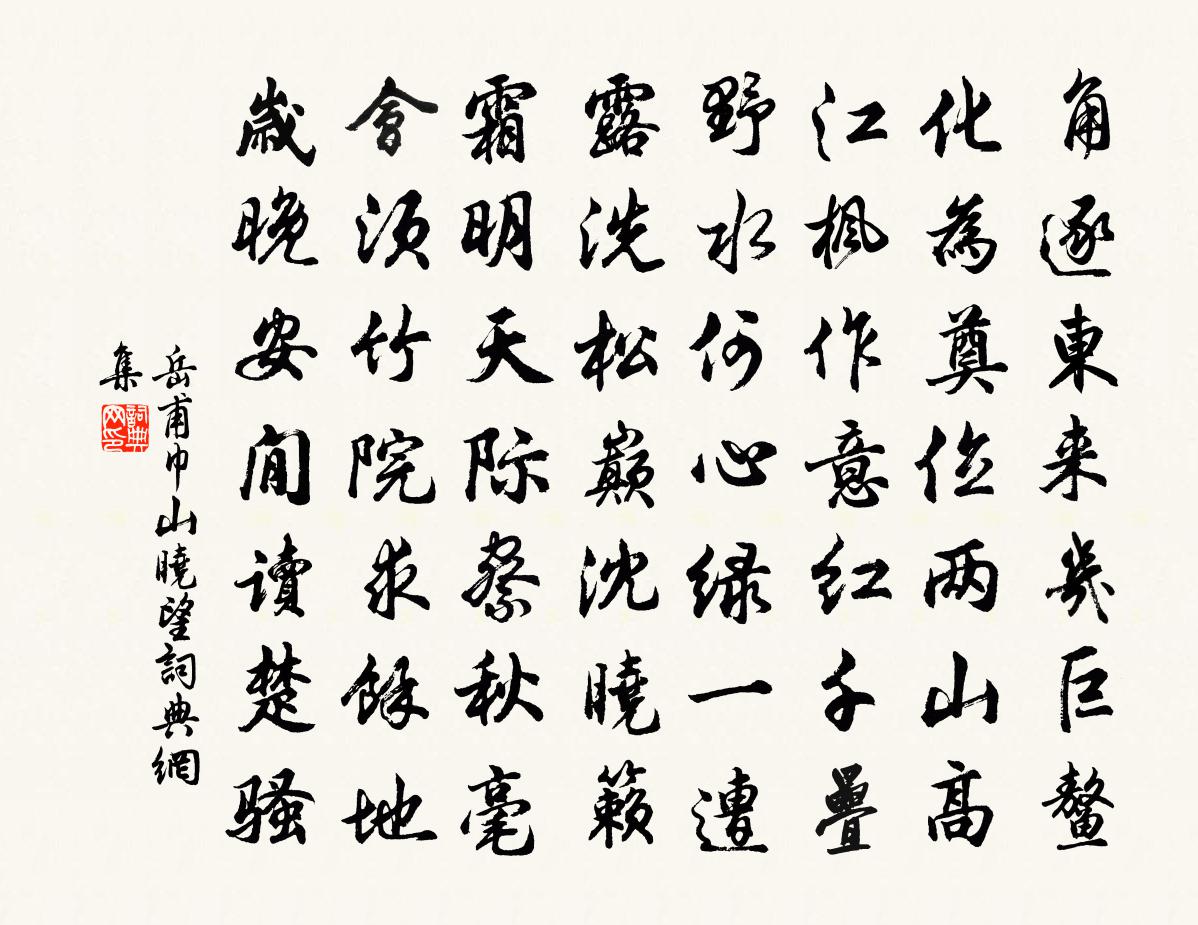 角逐東来幾巨鳌
化為奠位兩山高
江楓作意紅千疊
野水何心绿一遭
露洗松巔沈曉籟
霜明天际察秋毫
會須竹院求餘地
歲晚安閒讀楚騷
岳甫巾山曉望詞典網
集
詞典
网印